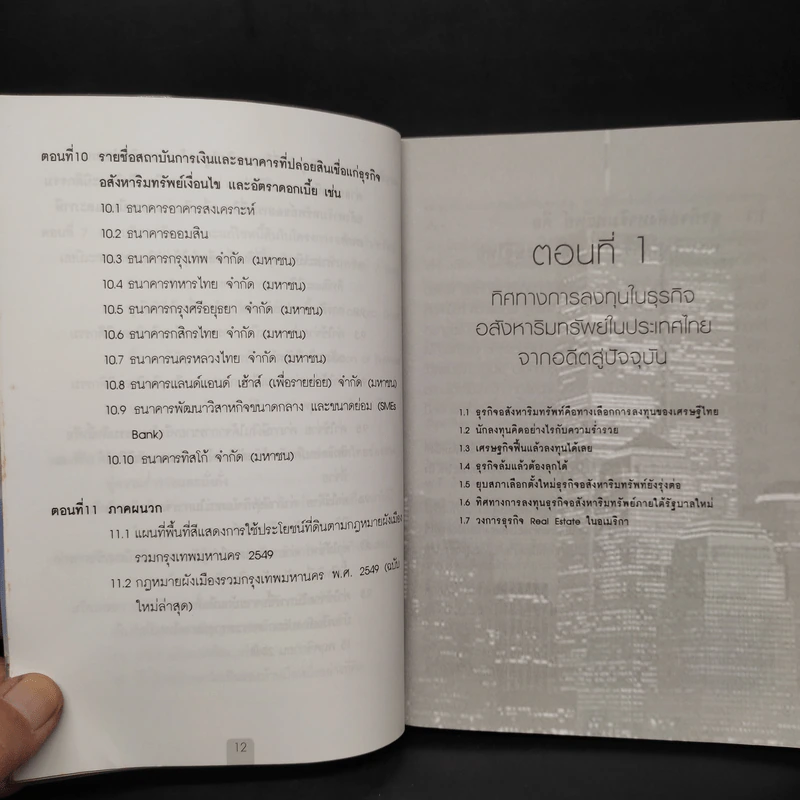 ตอนที่10 รายชื่อสถาบันการเงินและธนาคารที่ปล่อยสินเชื่อแก่ธุรกิจ
อสังหาริมทรัพย์เงื่อนไข และอัตราดอกเบี้ย เช่น
10.1 ธนาคารอาคารสงเคราะห์
10.2 ธนาคารออมสิน
10.3 ธนาคารกรุงเทพ จำกัด (มหาชน)
10.4 ธนาคารทหารไทย จำกัด (มหาชน)
10.5 ธนาคารกรุงศรีอยุธยา จำกัด (มหาชน)
10.6 ธนาคารกสิกรไทย จำกัด (มหาชน)
10.7 ธนาคารนครหลวงไทย จำกัด (มหาชน)
10.8 ธนาคารแลนด์แอนด์ เฮ้าส์ (เพื่อรายย่อย) จำกัด (มหาชน)
10.9 ธนาคารพัฒนาวิสาหกิจขนาดกลาง และขนาดย่อม (SMEs
Bank)
10.10 ธนาคารทิสโก้ จำกัด (มหาชน)
ตอนที่11 ภาคผนวก
11.1 แผนที่พื้นที่สีแสดงการใช้ประโยชน์ที่ดินตามกฎหมายผังเมือง
รวมกรุงเทพมหานคร 2549
11.2 กฎหมายผังเมืองรวมกรุงเทพมหานคร พ.ศ. 2549 (ฉบับ
ใหม่ล่าสุด)
12
ตอนที่ 1
ทิศทางการลงทุนในธุรกิจ
อสังหาริมทรัพย์ในประเทศไทย
จากอดีตสู่ปัจจุบัน
1.1 ธุรกิจอสังหาริมทรัพท์คือทางเลือกการลงทุนของเศรษฐีไทย
1.2 นักลงทุนคิดอย่างไรกับความร่ำรวย
1.3 เศรษฐกิจฟื้นแล้วลงทุนได้เลย
1.4 ธุรกิจล้มแล้วต้องลุกได้
1.5 ยุบสภาเลือกตั้งใหม่ธุรกิจอสังหาริมทรัพย์ยังรุ่งต่อ
1.6 ทิศทางการลงทุนธุรกิจอสังหาริมทรัพย์ภายใต้รัฐบาลใหม่
1.7 วงการธุรกิจ Real Estate ในอเมริกา